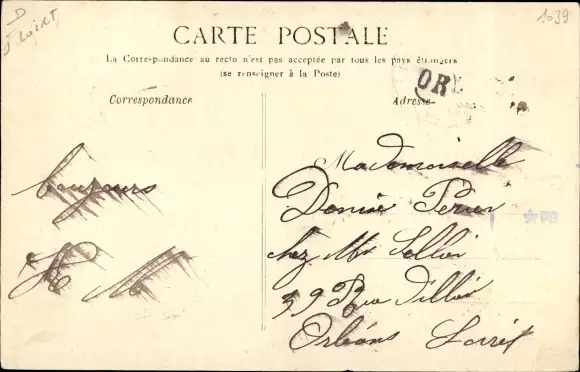 1039
CARTE POSTALE
La Correspondance au recto n'est pas acceptée par tous les pays étrangers
(se renseigner à la Poste)
Correspondance
Adresse
OR
Mademoiselle
Denise Perier
chez Mr Sellier
39 Rue d'Illiers
Orléans Loiret
bonjours
H M